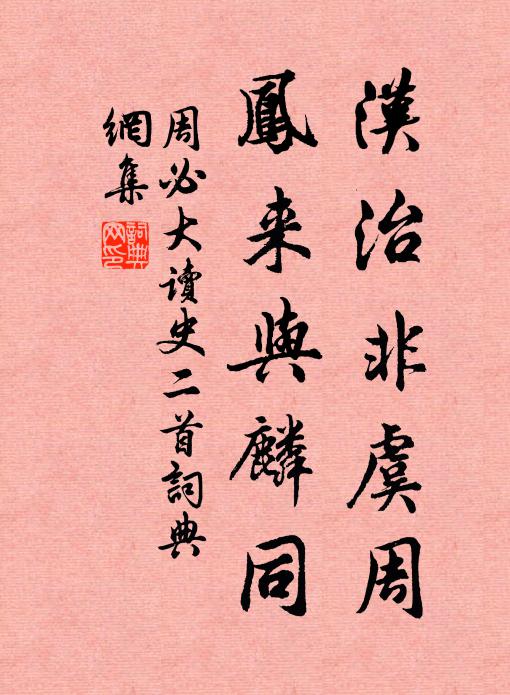 漢治非虞周
鳳来與麟同
周必大讀史二首詞典
網集
詞典網印